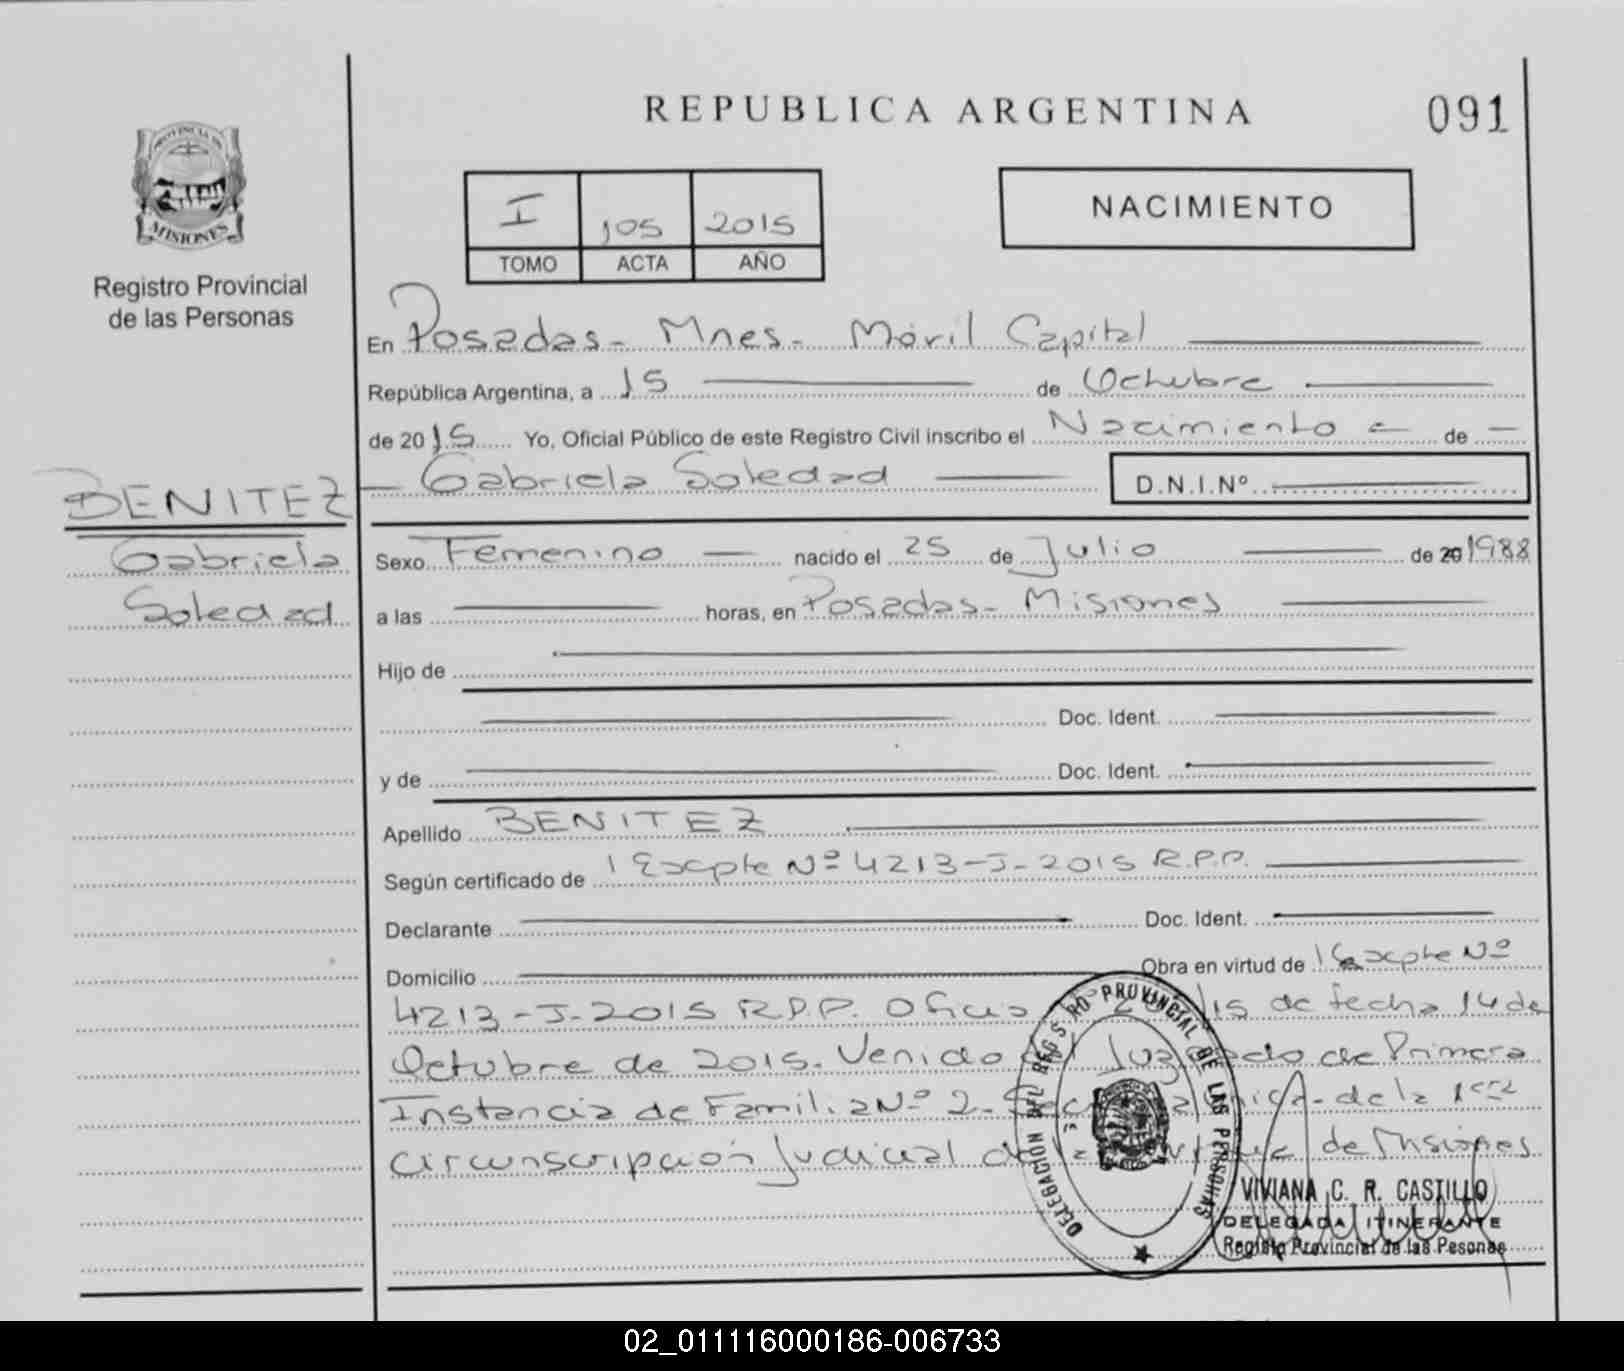 REPUBLICA ARGENTINA
091
PROVINCIA DE
MISIONES
Registro Provincial
de las Personas
I 105 2015
TOMO ACTA AÑO
NACIMIENTO
En Posadas - Mnes - Móvil Capital
República Argentina, a 15 de Octubre
de 2015 Yo, Oficial Público de este Registro Civil inscribo el Nacimiento de
Gabriela Soledad D.N.I.Nº
BENITEZ
Gabriela
Soledad
Sexo Femenino nacido el 25 de Julio de 20 1988
a las horas, en Posadas - Misiones
Hijo de
Doc. Ident.
y de Doc. Ident.
Apellido BENITEZ
Según certificado de Expte Nº 4213-J-2015 R.P.P.
Declarante Doc. Ident.
Domicilio Obra en virtud de Expte Nº
4213-J-2015 R.P.P. Oficio 15 de fecha 14 de
Octubre de 2015. Venido del Juzgado de Primera
Instancia de Familia Nº 2 - de la 1era
circunscripción Judicial de la de Misiones
DELEGACION DEL REGISTRO PROVINCIAL DE LAS PERSONAS
VIVIANA C. R. CASTILLO
DELEGADA ITINERANTE
Registo Provincial de las Pesonas
02_011116000186-006733